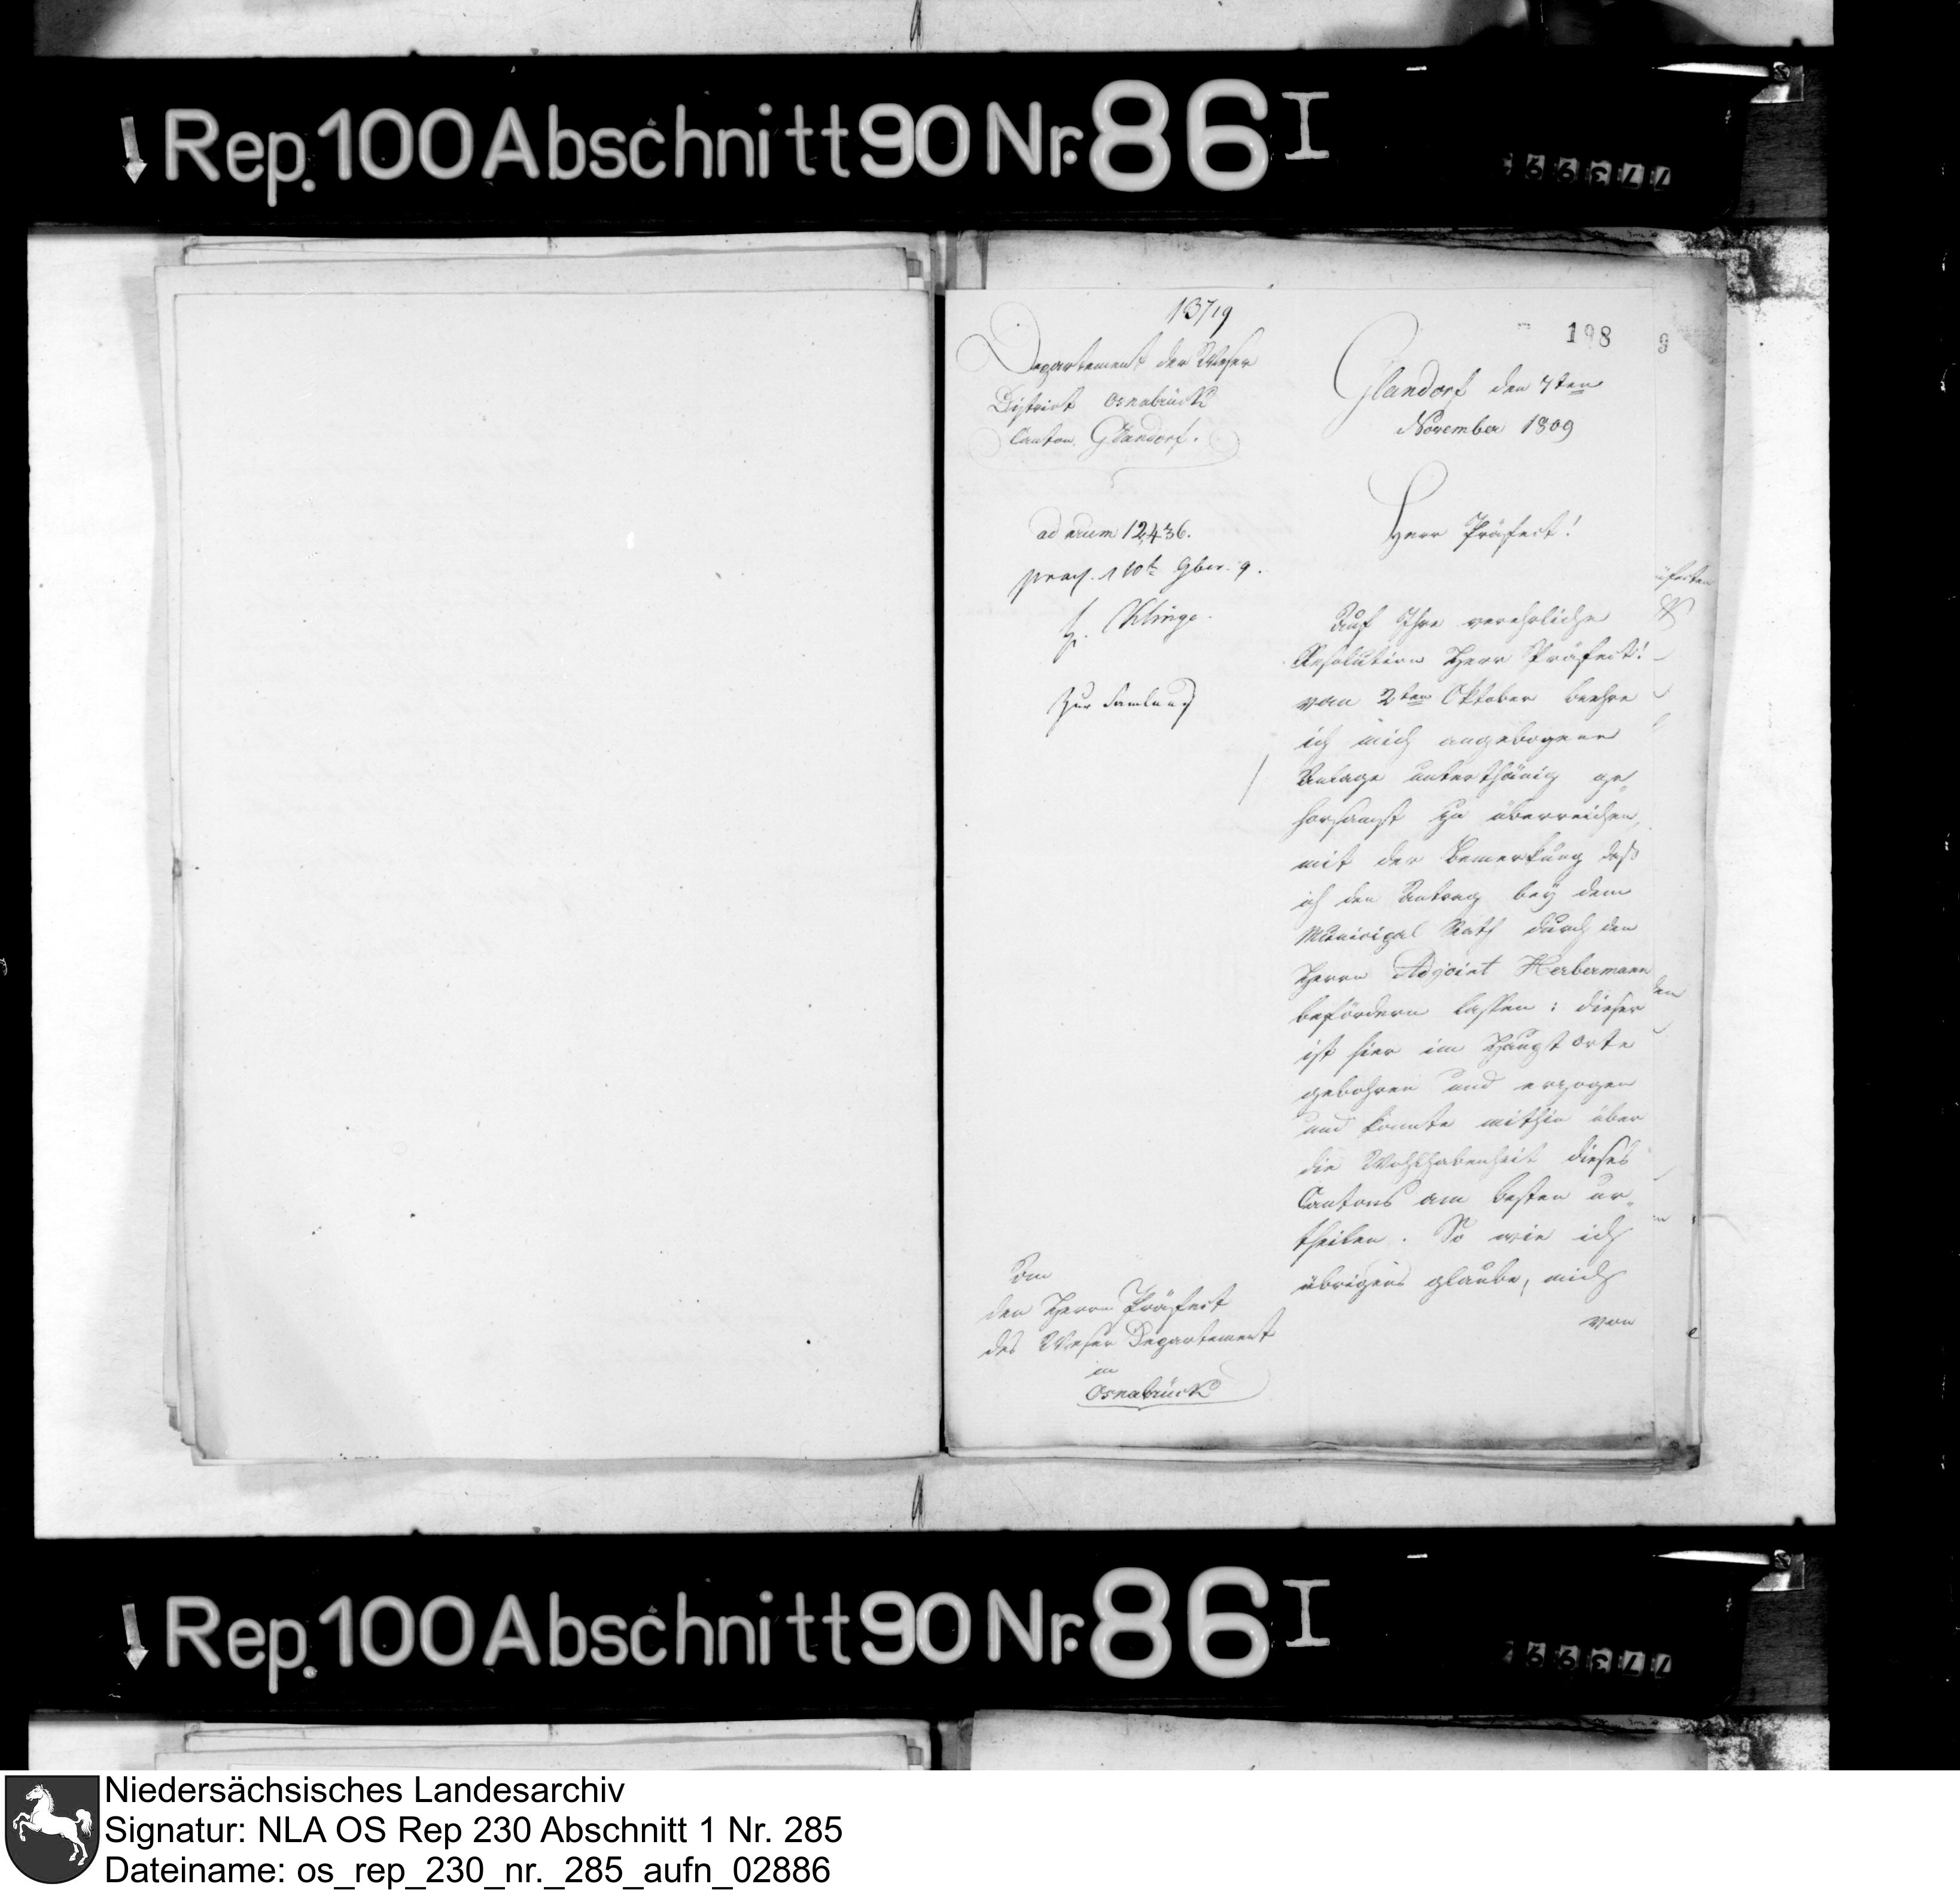 Rep. 100 Abschnitt 90 Nr. 86 I
13719
198
9
Departement der Weser
District Osnabrück
Canton Glandorf.
Glandorf den 7ten
November 1809
ad num 12,436.
praes. 10t 9ber. 9.
H. Klinge.
Zur Samlung
Herr Präfect!
Auf Ihre verehrliche
Resolution Herr Präfect!
vom 2ten Oktober beehre
ich mich angebogene
Anlage unterthänig ge„
horsamst zu überreichen,
mit der Bemerkung daß
ich den Antrag bey dem
Municipal Rath durch den
Herrn Adjoint Herbermann
befördern laßen: dieser
ist hier im Hauptorte
gebohren und erzogen
und konnte mithin über
die Wohlhabenheit dieses
Cantons am besten ur„
theilen. So wie ich
übrigens glaube, mich
von
den Herrn Präfect
des Weser Departement
in
Osnabrück
Rep. 100 Abschnitt 90 Nr. 86 I
Niedersächsisches Landesarchiv
Signatur: NLA OS Rep 230 Abschnitt 1 Nr. 285
Dateiname: os_rep_230_nr._285_aufn_02886